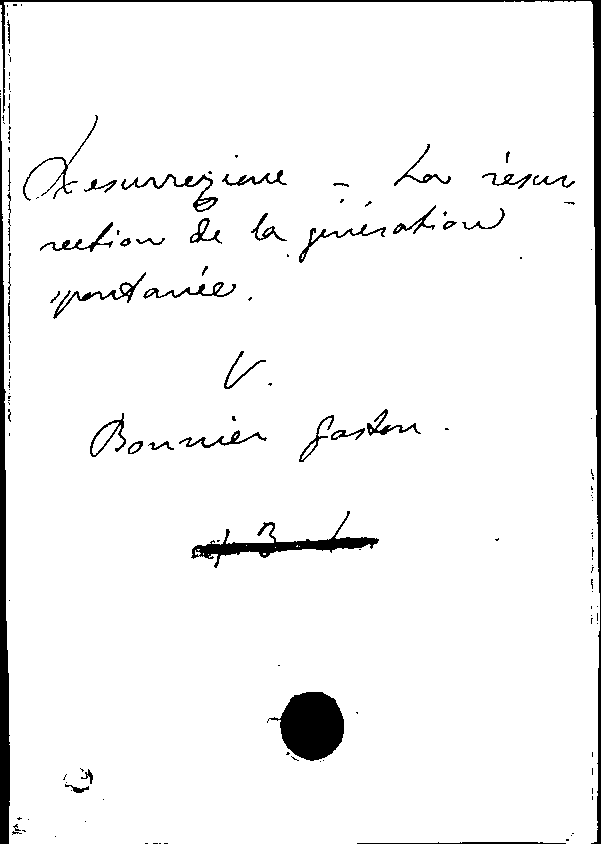 Resurrezione - La résur-
rection de la génération
spontanée.
V.
Bonnier Gaston.